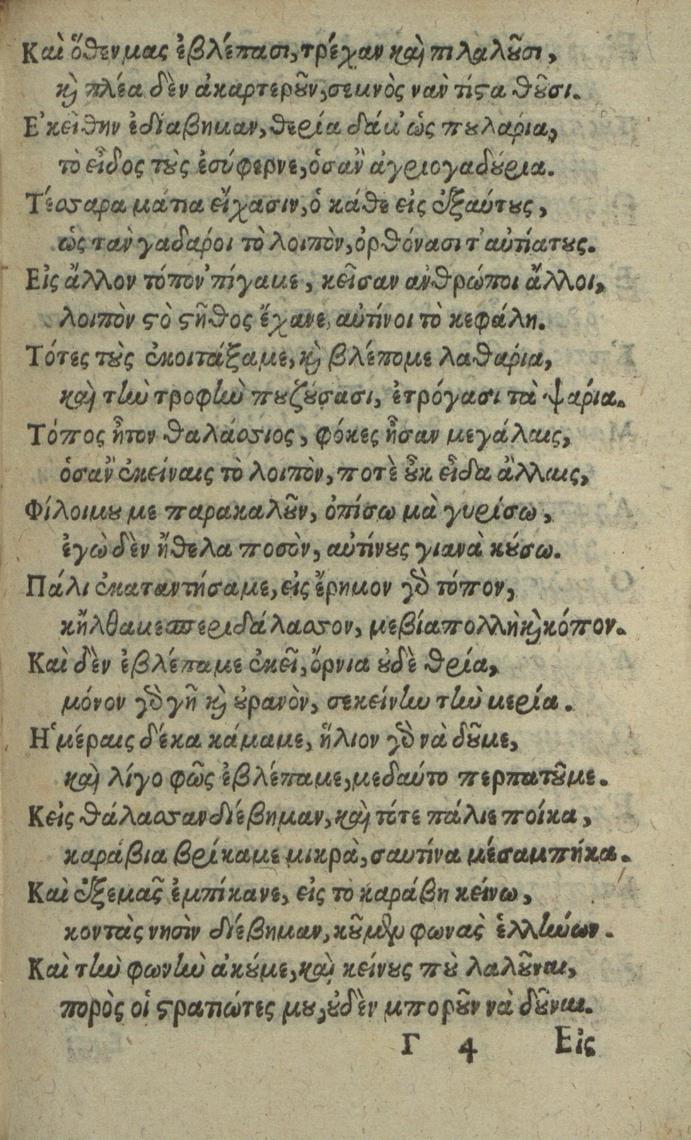 Καὶ ὅθεν μας ἐβλέπασι, τρέχαν καὶ πιλαλοῦσι,
κỳ πλέα δὲν ἀκαρτεροῦν, σεμνὸς ναν τίς τα θοῦσι.
Ε᾿κεῖθην ἐδιάβημαν, θερία δάμ' ὡς πουλάρια,
τὸ εἶδος τοὺς ἐσύφερνε, ὁσὰν ἀγριογαδούρια.
Τέσσαρα μάτια εἴχασιν, ὁ κάθε εἰς ἐξαύτους,
ὡς ταν γαδαροι τὸ λοιπὸν, ὀρθόνασι τ' αὐτίατους.
Εἰς ἄλλον τόπον 'πίγαμε, κεῖσαν ανθρώποι ἄλλοι,
λοιπὸν στὸ στῆθος ἔχανε, αὐτίνοι τὸ κεφάλη.
Τότες τοὺς ἐκοιτάξαμε, κỳ βλέπομε λαθαρία,
καὶ τὴν τροφὴν πουζούσασι, ἐτρόγασι τὰ ψαρία.
Τόπος ἦτον θαλάσσιος, φόκες ἦσαν μεγάλαις,
ὁσὰν ἐκείναις τὸ λοιπὸν, ποτὲ οὐκ εἶδα ἄλλαις,
Φίλοιμου με παρακαλοῦν, ὀπίσω μὰ γυρίσω,
ἐγὼ δὲν ἤθελα ποσὸν, αὐτίνους γιανὰ κούσω.
Πάλι ἐκαταντήσαμε, εἰς ἔρημον γὰρ τόπον,
κἤλθαμε περιδάλασσον, μεβία πολλὴ κỳ κόπον.
Καὶ δὲν ἐβλέπαμε ἐκεῖ, ὄρνια οὐδὲ θρία,
μόνον γὰρ γῆ κỳ οὐρανὸν, σεκείνην τὴν μερία.
Η῾μέραις δέκα κάμαμε, ἥλιον γὰρ νὰ δοῦμε,
καὶ λίγο φῶς ἐβλέπαμε, μεδαύτο περπατοῦμε.
Κεἰς θάλασσαν διέβημαν, καὶ τότε πάλιε ποίκα,
καράβια βρίκαμε μικρὰ, σαυτίνα μέσαμπηκα.
Καὶ ἐξεμᾶς ἐμπίκανε, εἰς τὸ καράβη κείνω,
κοντὰς νησὶν διέβημαν, κοῦμεν φωνὰς ἑλλήνων.
Καὶ τὴν φωνὴν ἀκούμε, καὶ κείνους ποὺ λαλοῦναι,
πορὸς οἱ στρατιώτες μου, οὐδὲν μποροῦν νὰ δοῦναι.
Γ 4 Εἰς